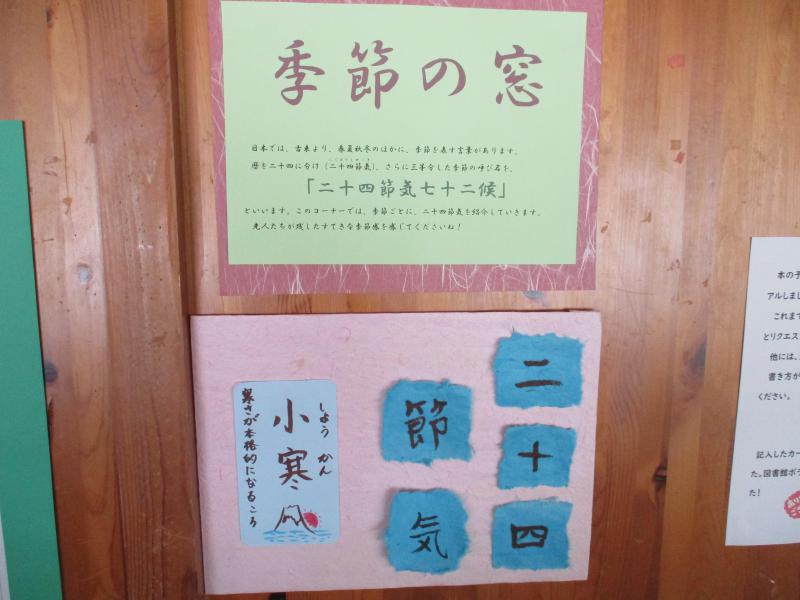 季節の窓
日本では、古来より、春夏秋冬のほかに、季節を表す言葉があります。
暦を二十四に分け（二十四節気）、さらに三等分した季節の呼び名を、
「二十四節気七十二候」
といいます。このコーナーでは、季節ごとに、二十四節気を紹介していきます。
先人たちが残したすてきな季節感を感じてくださいね！
二十四
節気
しょう かん
小寒
寒さが本格的になるころ
本の予
アルしまし
これまで
とリクエス
他には、
書き方が
ください。
記入したカー
た。図書館ボラ
た！